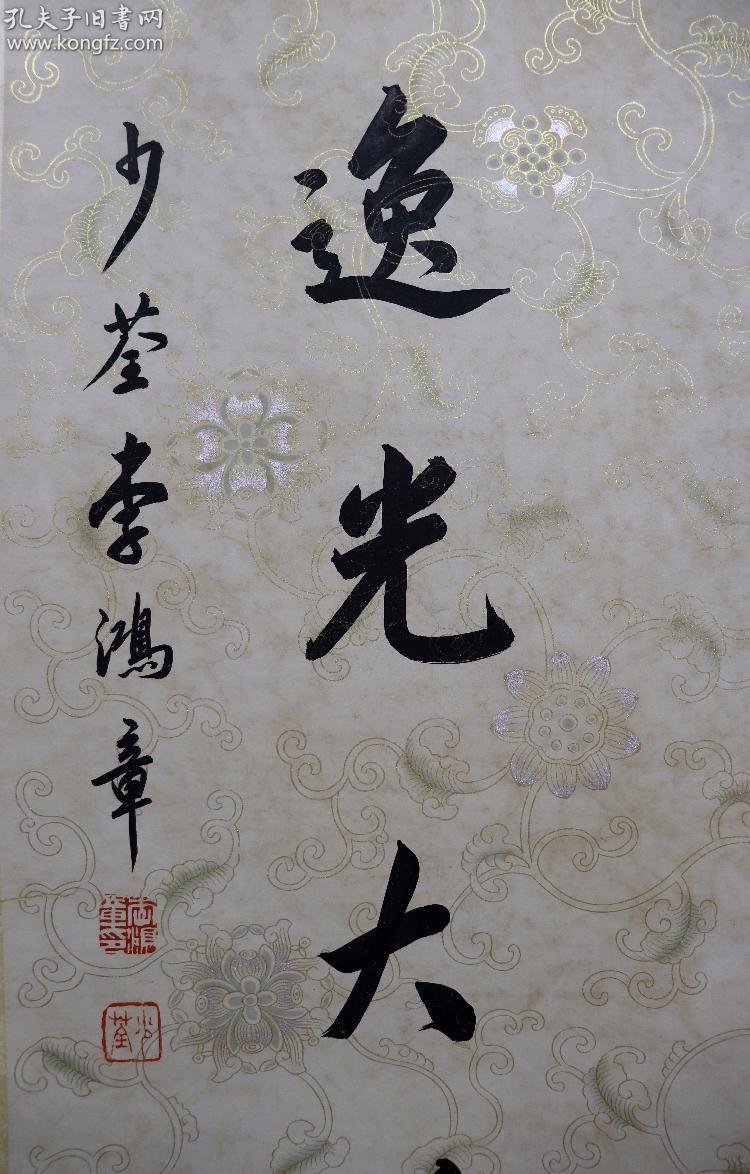 孔夫子旧书网
www.kongfz.com
逸光大
少荃李鸿章
少荃